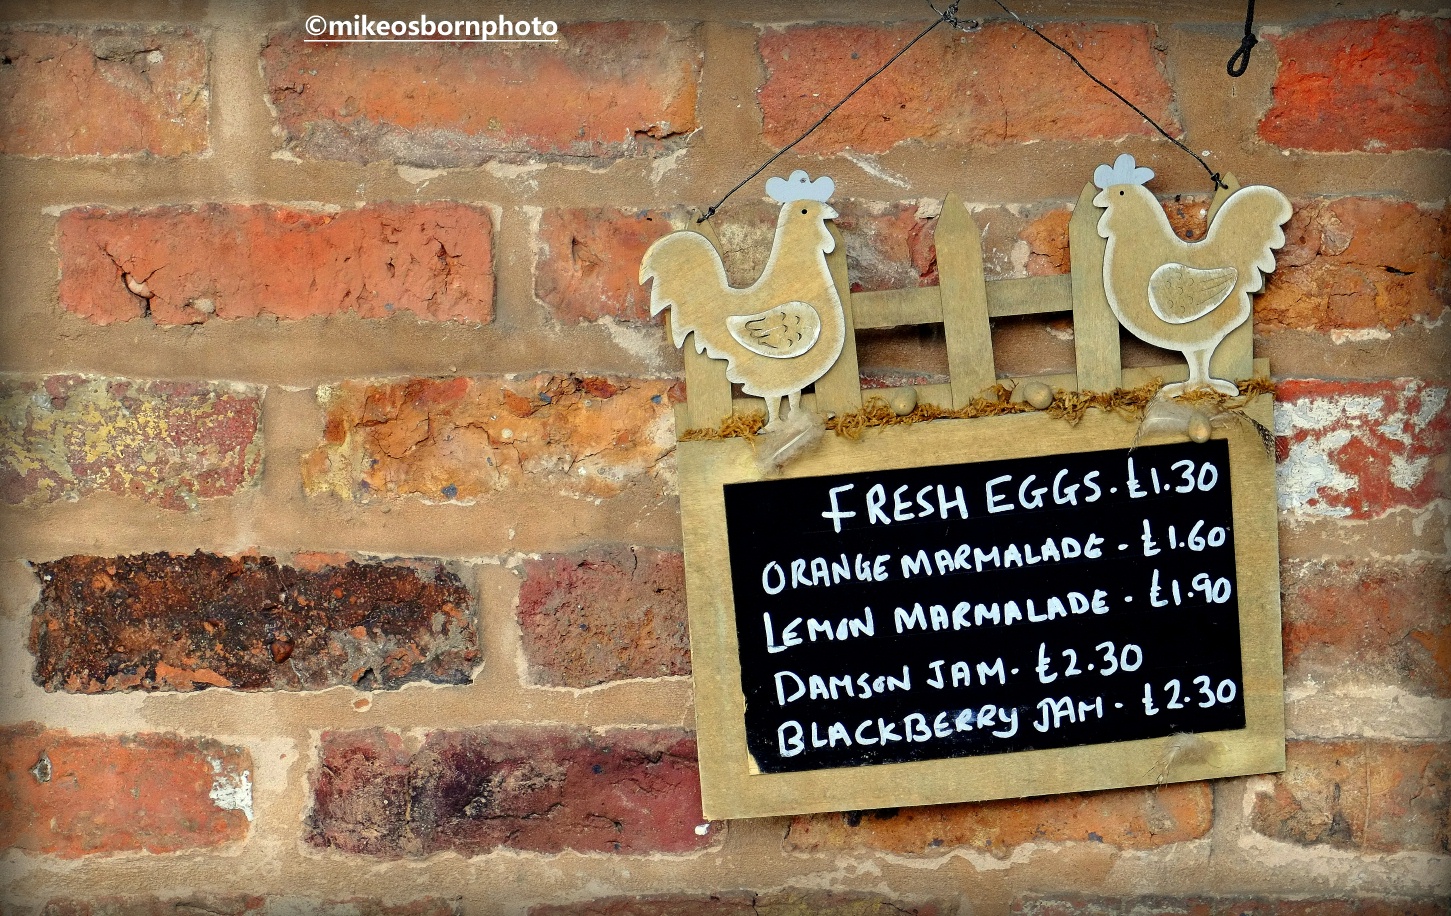 ©mikeosbornphoto
FRESH EGGS. £1.30
ORANGE MARMALADE - £1.60
LEMON MARMALADE - £1.90
DAMSON JAM. £2.30
BLACKBERRY JAM - £2.30